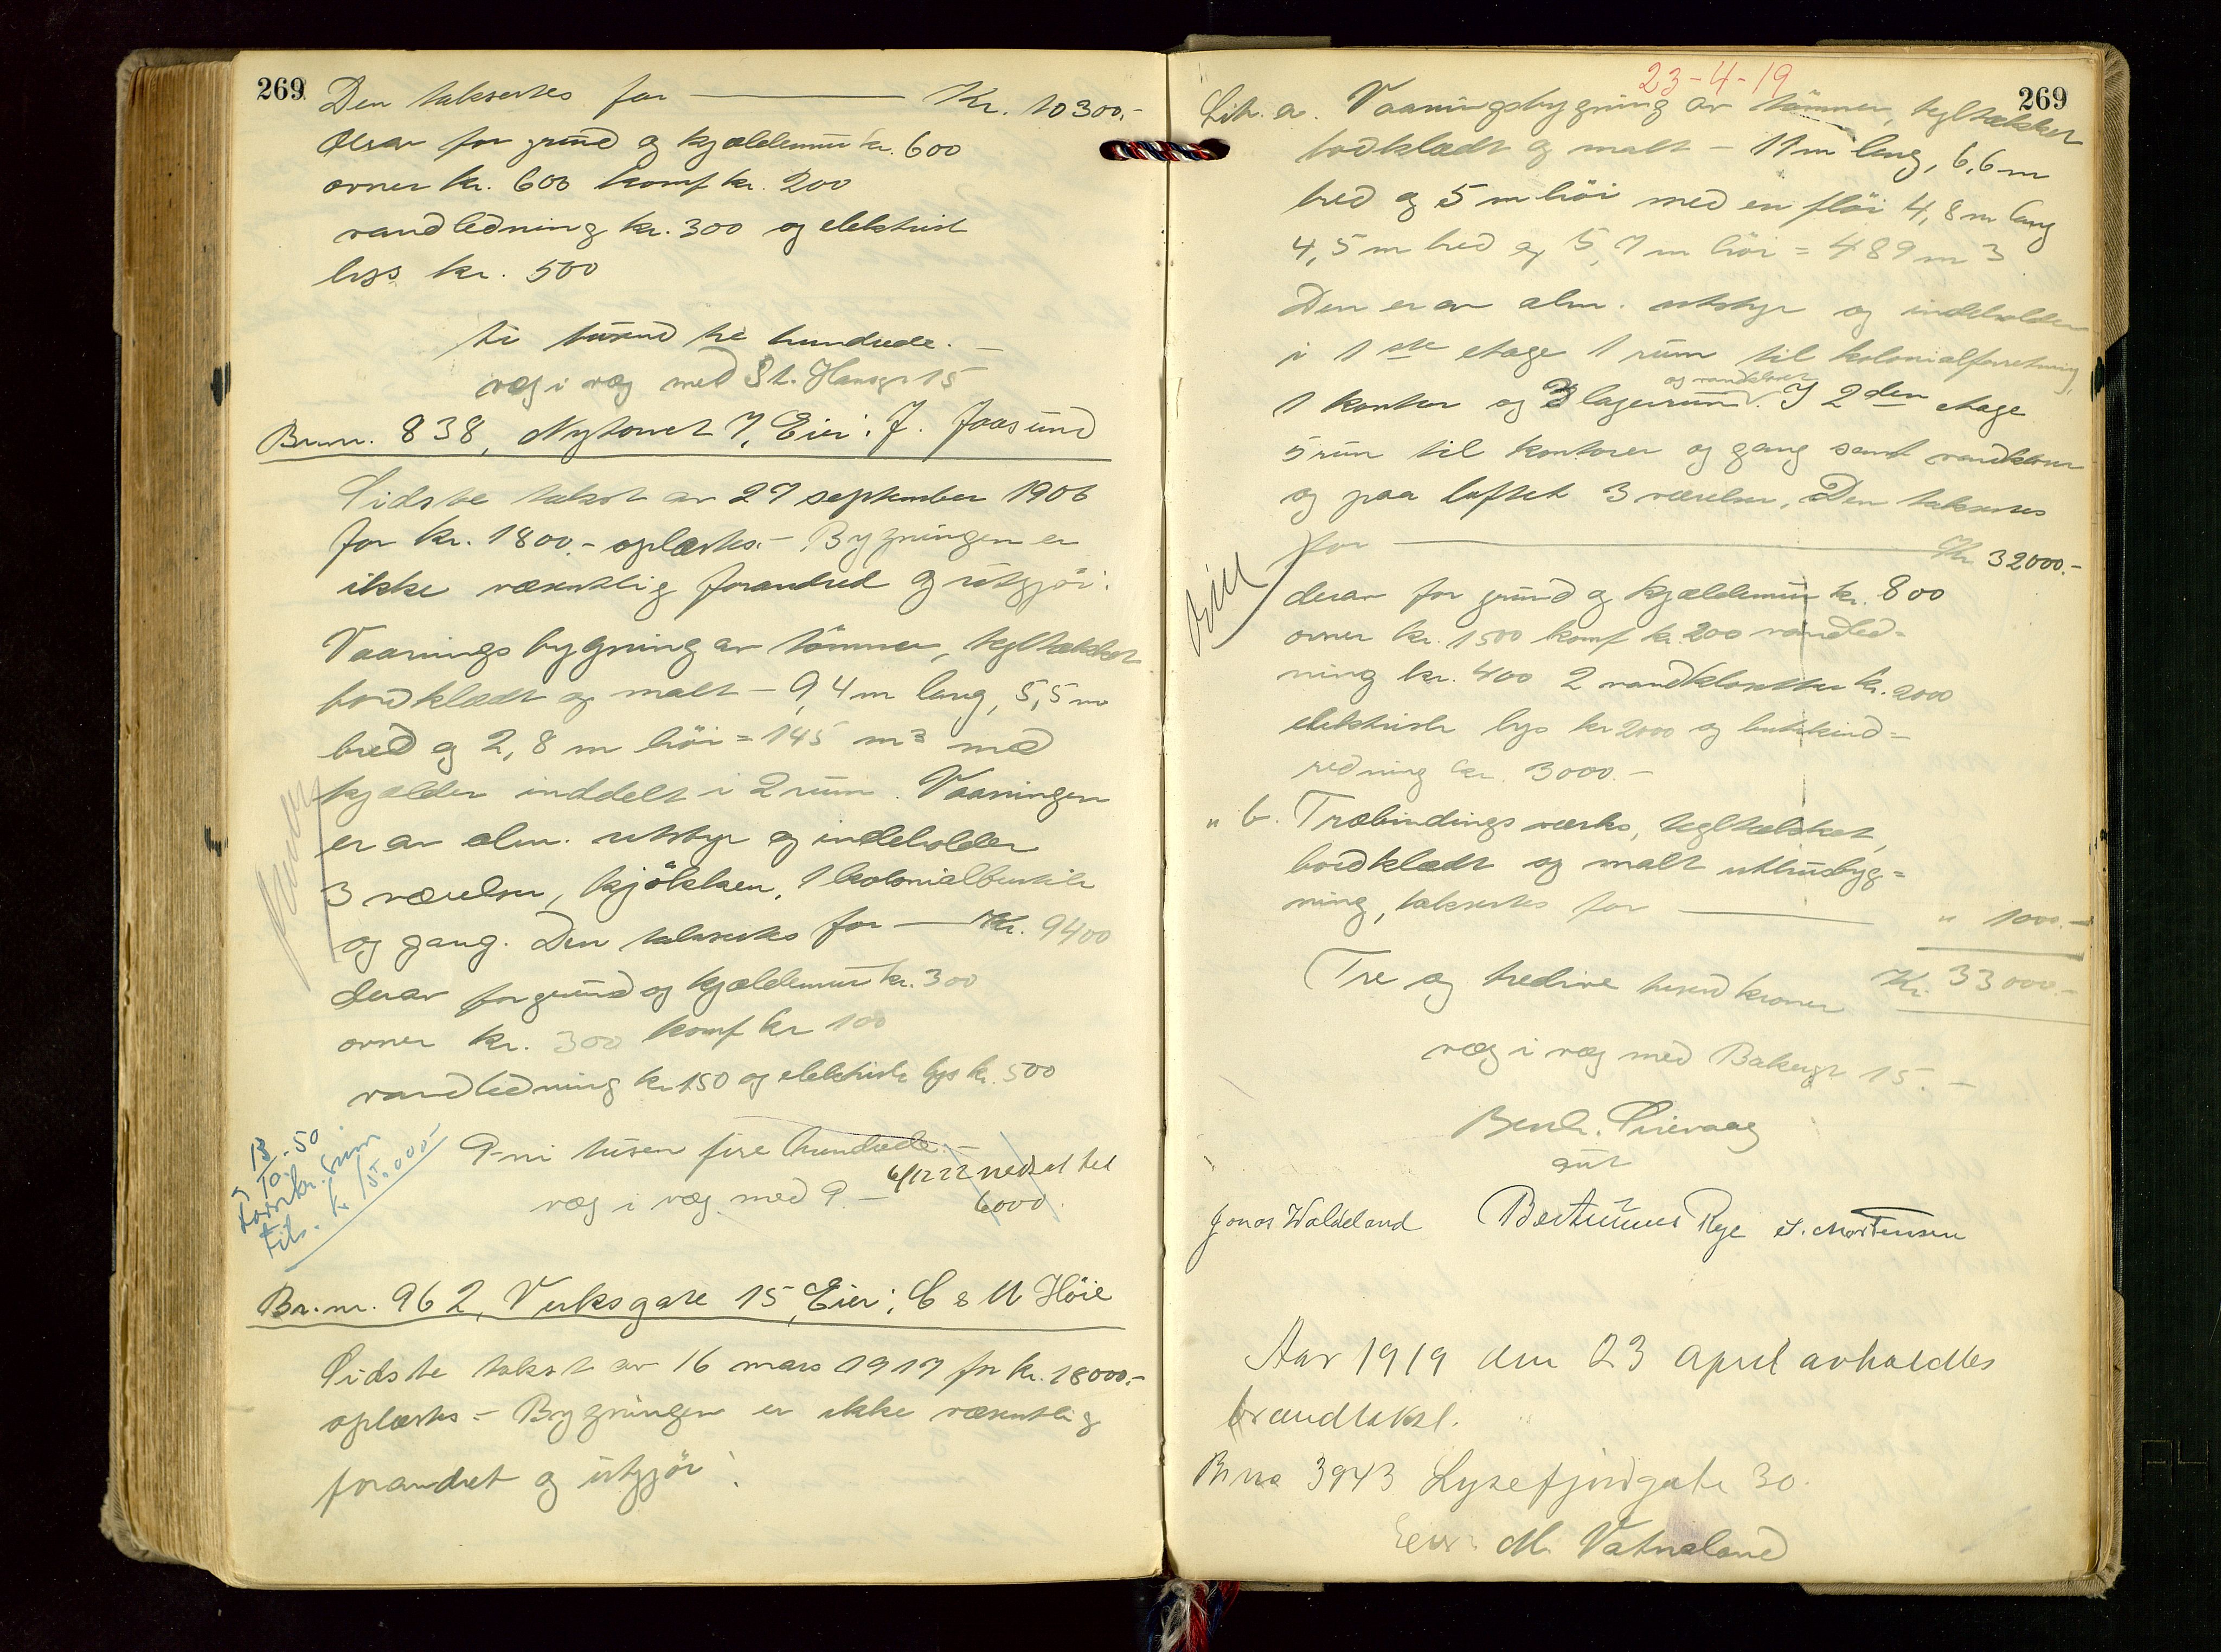 269
Den takseres for — Kr. 10300.-
derav for grund og kjældermur kr. 600
ovner kr. 600 komf kr. 200
vandledning kr. 300 og elektrisk
lys kr. 500
ti tusend tre hundrede. —
væg i væg med St. Hansgt 15
Br.nr. 838, Nytorvet 7, Eier: J. Jaasund
Sidste takst av 27 september 1906
for kr. 1800.- oplæstes.- Bygningen er
ikke væsentlig forandred og utgjør:
Vaaningsbygning av tömmer, tegltækket
bordklædt og malt - 9,4 m lang, 5,5 m
bred og 2,8 m höi = 145 m3 med
kjælder inddelt i 2 rum. Vaaningen
er av alm. utstyr og indeholder
3 værelser, kjökken, 1 kolonialbutik
og gang. Den takseres for — Kr. 9400
derav for grund og kjældermur kr. 300
ovner kr. 300 komf kr 100
vandledning kr 150 og elektrisk lys kr. 500
9-ni tusen fire hundrede. —
6/12 22 nedsat til
væg i væg med 9 — 6000
18/10.-50
til. kr. 15.000
Br.nr. 962, Verksgate 15, Eier: C & M Höie
Sidste takst av 16 mars 1917 for kr. 18000.-
oplæstes - Bygningen er ikke væsentlig
forandret og utgjör:
23-4-19
269
Litr. a. Vaaningsbygning av tömmer, tegltækket
bordklædt og malt - 11 m lang, 6,6 m
bred og 5 m höi med en flöi 4,8 m lang
4,5 m bred og 5,7 m höi = 489 m3
Den er av alm. utstyr og indeholder
i 1ste etage 1 rum til kolonialforretning,
og vandkloset
1 kontor og 3 lagerrum. I 2den etage
5 rum til kontorer og gang samt vandkloset
og paa loftet 3 værelser. Den takseres
for — Kr 32000.-
derav for grund og kjældermur kr. 800
ovner kr. 1500 komf kr. 200 vandled=
ning kr. 400 2 vandklosetter kr. 2000
elektrisk lys kr 2000 og butikind=
redning kr. 3000.-
" b. Træbindingsverks, tegltækket,
bordklædt og malt uthusbyg=
ning, takseres for — " 1000.-
Tre og tredive tusend kroner Kr. 33000.-
væg i væg med Bakergt 15. -
Jonas Waldeland Bertinius Rye S. Mortensen
Aar 1919 den 23 april avholdtes
brandtakst.
Br no 3943 Lysefjordgate 30.
Eier: M. Vatneland